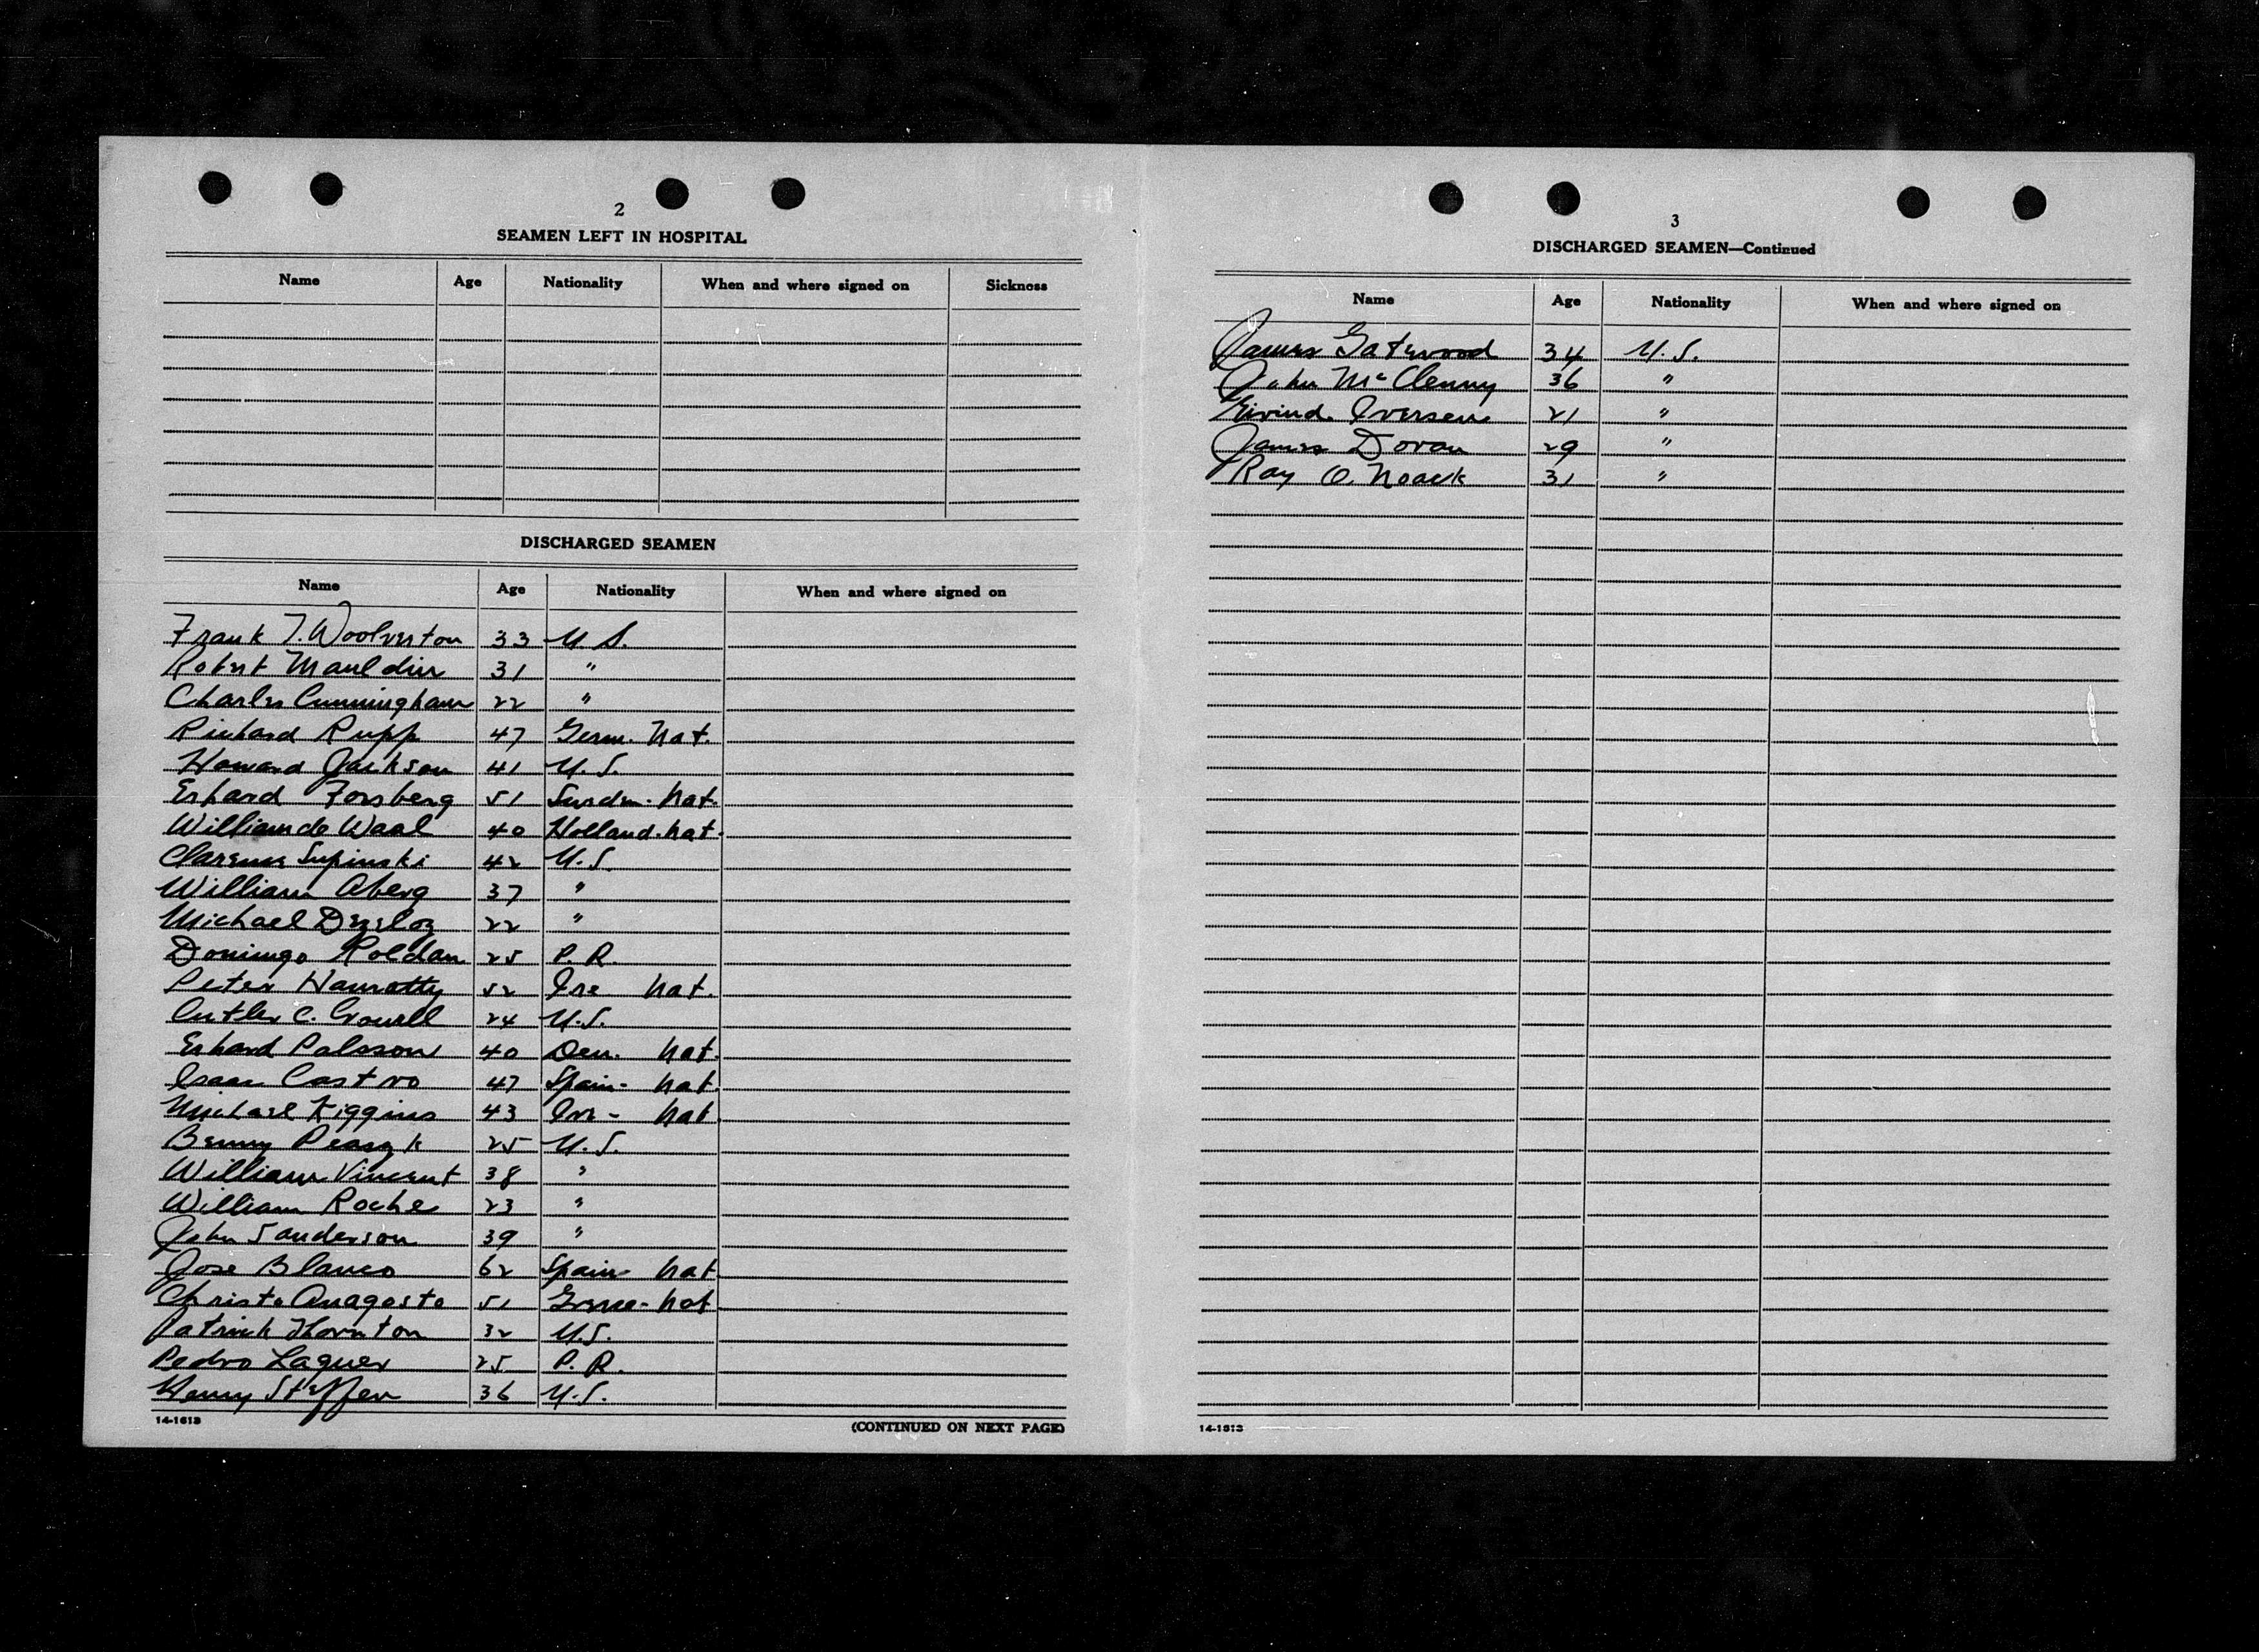 2
SEAMEN LEFT IN HOSPITAL
Name Age Nationality When and where signed on Sickness
DISCHARGED SEAMEN
Name Age Nationality When and where signed on
Frank T. Woolverton 33 U.S.
Robert Mauldin 31 "
Charles Cunningham 22 "
Richard Rupp 47 Germ. Nat.
Howard Jackson 41 U.S.
Erhard Forsberg 51 Sweden. Nat.
William de Waal 40 Holland. Nat.
Clarence Supinski 42 U.S.
William Aberg 37 "
Michael 22 "
Domingo Roldan 25 P.R.
Peter Hanratty 52 Ire Nat.
Cutler C. Crowell 24 U.S.
Erhard Palsson 40 Den. Nat.
Isaac Castro 47 Spain- Nat.
Michael Kiggins 43 Ire- Nat.
Benny 25 U.S.
William Vincent 38 "
William Roche 23 "
John Sanderson 39 "
Jose Blanco 62 Spain Nat
Christo Anagosto 51 Greece- Nat
Patrick Thornton 32 U.S.
Pedro Laguer 25 P.R.
Henry Steffen 36 U.S.
14-1613 (CONTINUED ON NEXT PAGE)
3
DISCHARGED SEAMEN—Continued
Name Age Nationality When and where signed on
James Gatewood 34 U.S.
John McClenny 36 "
Eivind. Iversen 21 "
James Doran 29 "
Ray O. Noack 31 "
14-1613